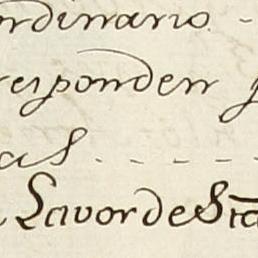 ordinario -
responden p
as. - - - - -
a Lavor de Sta